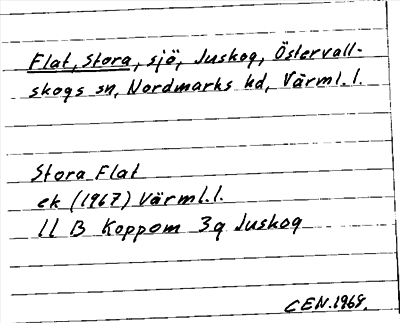 Flat, Stora, sjö, Juskog, Östervall-
skogs sn, Nordmarks hd, Värml. l.
Stora Flat
ek (1967) Värml. l.
11 B Koppom 3g Juskog
CEN. 1968.